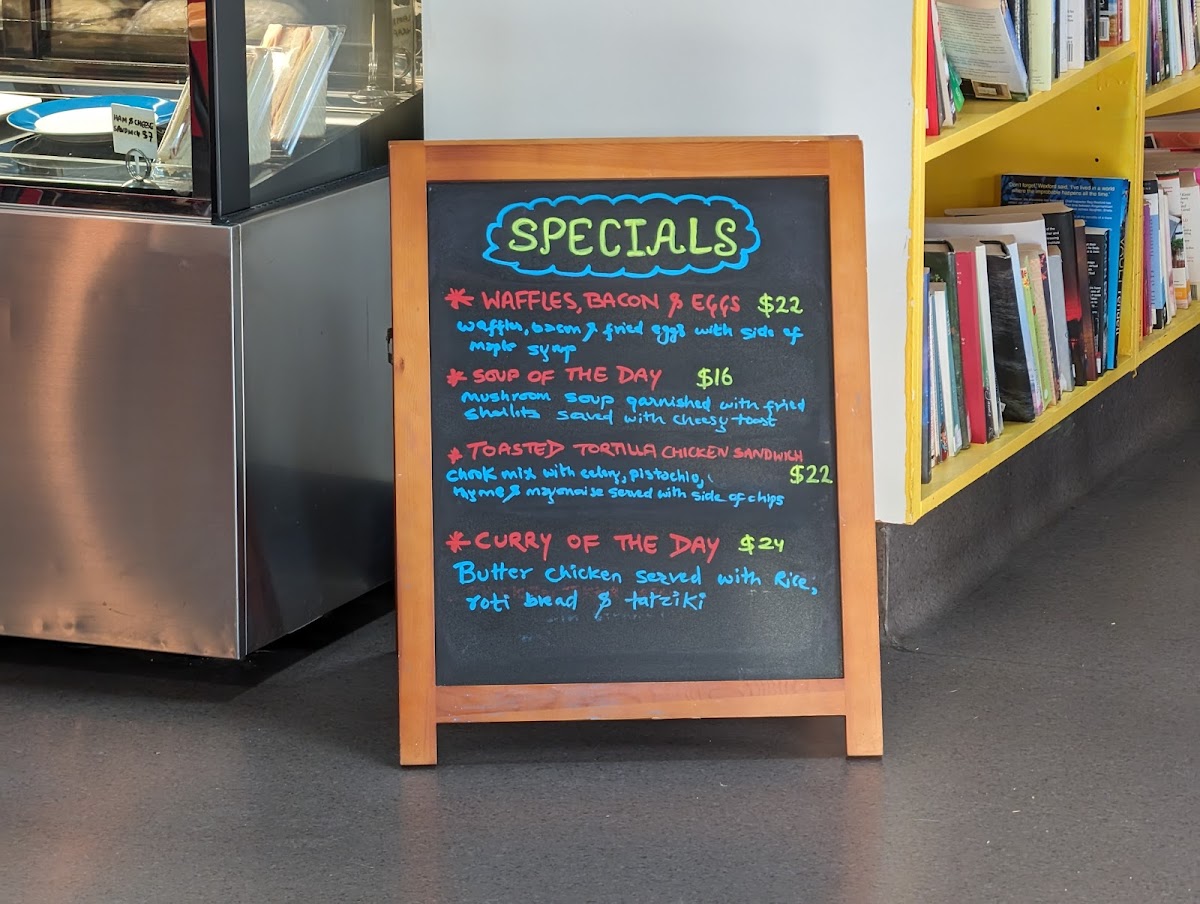 HAM & CHEESE
SANDWICH $7
SPECIALS
* WAFFLES, BACON & EGGS $22
waffles, bacon & fried eggs with side of
maple syrup
* SOUP OF THE DAY $16
mushroom soup garnished with fried
shallots served with cheesy toast
* TOASTED TORTILLA CHICKEN SANDWICH
chook mix with celery, pistachio,
$22
thyme & mayonaise served with side of chips
* CURRY OF THE DAY $24
Butter chicken served with Rice,
roti bread & tatziki
'Don't forget,' Wexford said, 'I've lived in a world
where the improbable happens all the time.'